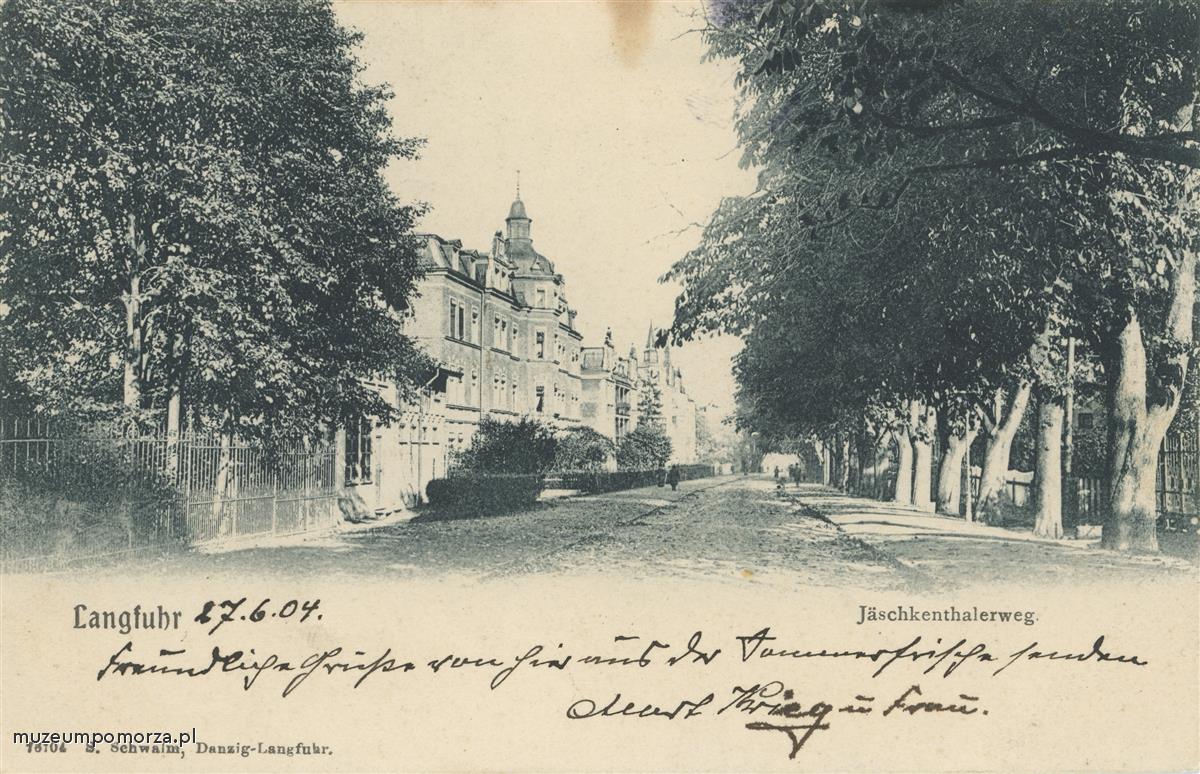 Langfuhr 27.6.04.
Jäschkenthalerweg.
Freundliche Grüße von hier aus der Sommerfrische senden
Krieg u Frau.
muzeumpomorza.pl
S. Schwalm, Danzig-Langfuhr.